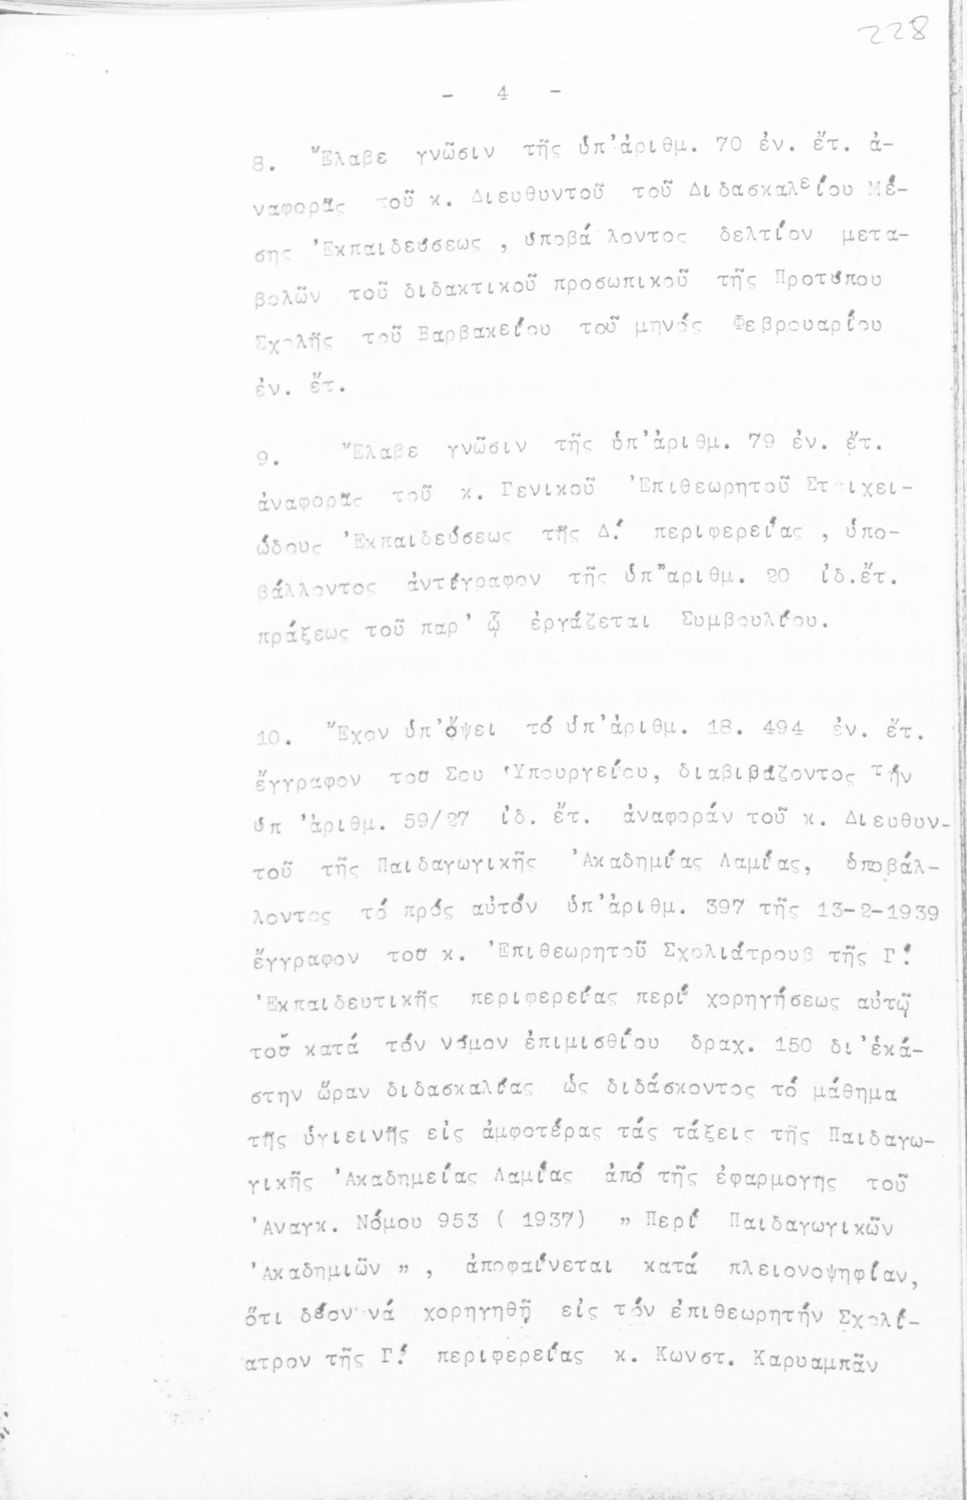 228
- 4 -
8. Ἔλαβε γνῶσιν τῆς ὑπ'ἀριθμ. 70 ἐν. ἔτ. ἀ-
ναφορᾶς τοῦ κ. Διευθυντοῦ τοῦ Διδασκαλείου Μέ-
σης Ἐκπαιδεύσεως , ὑποβά λοντος δελτίον μετα-
βολῶν τοῦ διδακτικοῦ προσωπικοῦ τῆς Προτύπου
Σχολῆς τοῦ Βαρβακείου τοῦ μηνός Φεβρουαρίου
ἐν. ἔτ.
9. Ἔλαβε γνῶσιν τῆς ὑπ'ἀριθμ. 79 ἐν. ἔτ.
ἀναφορᾶς τοῦ κ. Γενικοῦ Ἐπιθεωρητοῦ Στοιχει-
ώδους Ἐκπαιδεύσεως τῆς Δ΄. περιφερείας , ὑπο-
βάλλοντος ἀντίγραφον τῆς ὑπ"αριθμ. 20 ἰδ.ἔτ.
πράξεως τοῦ παρ' ᾧ ἐργάζεται Συμβουλίου.
10. Ἔχον ὑπ'ὄψει τό ὑπ'ἀριθμ. 18. 494 ἐν. ἔτ.
ἔγγραφον τοῦ Σου Ὑπουργείου, διαβιβάζοντος τήν
ὑπ 'ἀριθμ. 59/27 ἰδ. ἔτ. ἀναφοράν τοῦ κ. Διευθυν-
τοῦ τῆς Παιδαγωγικῆς Ἀκαδημίας Λαμίας, ὑποβάλ-
λοντος τό πρός αὐτόν ὑπ'ἀριθμ. 397 τῆς 13-2-1939
ἔγγραφον τοῦ κ. Ἐπιθεωρητοῦ Σχολιάτρους τῆς Γ΄.
Ἐκπαιδευτικῆς περιφερείας περί χορηγήσεως αὐτῷ
τοῦ κατά τόν νόμον ἐπιμισθίου δραχ. 150 δι'ἑκά-
στην ὥραν διδασκαλίας ὡς διδάσκοντος τό μάθημα
τῆς ὑγιεινῆς εἰς ἀμφοτέρας τάς τάξεις τῆς Παιδαγω-
γικῆς Ἀκαδημείας Λαμίας ἀπό τῆς ἐφαρμογης τοῦ
Ἀναγκ. Νόμου 953 ( 1937) " Περί Παιδαγωγικῶν
Ἀκαδημιῶν " , ἀποφαίνεται κατά πλειονοψηφίαν,
ὅτι δέον νά χορηγηθῇ εἰς τόν ἐπιθεωρητήν Σχολί-
ατρον τῆς Γ΄. περιφερείας κ. Κωνστ. Καρυαμπᾶν